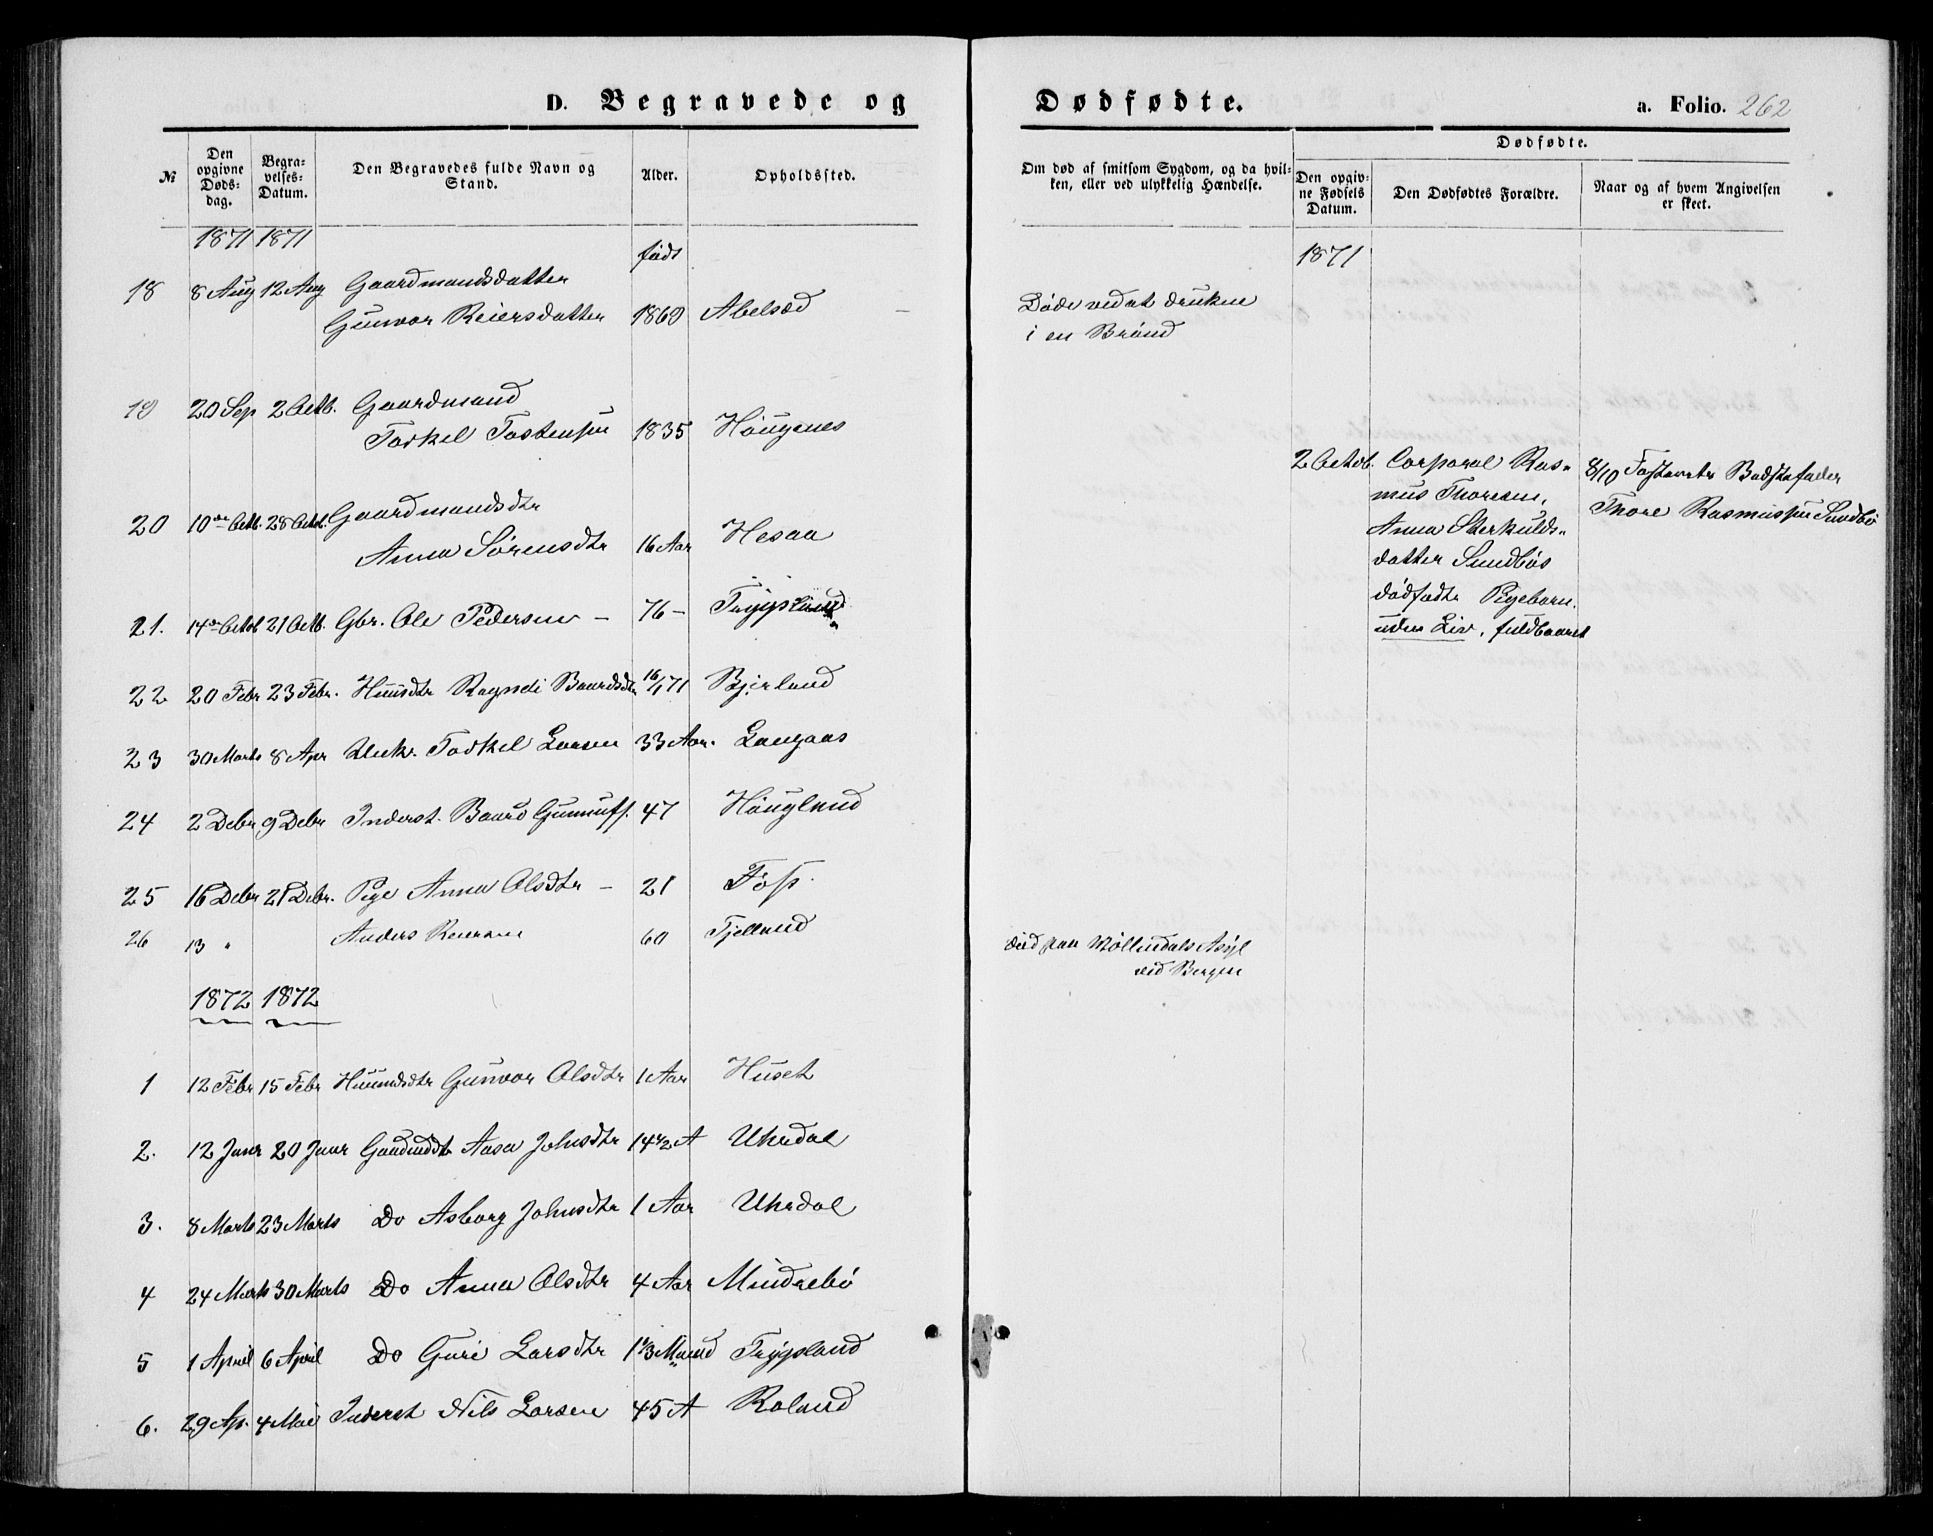 D. Begravede og Dødfødte. a. Folio. 262
№ Den opgivne Døds-dag. Begra-velses-Datum. Den Begravedes fulde Navn og Stand. Alder. Opholdssted. Om død af smitsom Sygdom, og da hvil-ken, eller ved ulykkelig Hændelse. Dødfødte. Den opgiv-ne Fødsels Datum. Den Dødfødtes Forældre. Naar og af hvem Angivelsen er skeet.
1871 1871 født 1871
18 8 Aug 12 Aug Gaardmandsdatter
Gunvor Reiersdatter 1869 Abelsæd Døde ved at drukne
i en Brønd
19 20 Sep 2 Octb. Gaardmand
Torkel Tostensen 1835 Høugenes
2 Octob. Corporal Ras-
mus Thoresen,
Anna Sterkulds-
datter Sundbøs
dødfødte Pigebarn.
uden Liv, fuldbaaret
8/10 Badstefader
Thore Rasmussen Sundbø
20 10de Octb. 28 Octob. Gaardmandsdtr
Anna Sørensdtr 16 Aar Hesaa
21. 14de Octob 21 Octb. Gbr. Ole Pedersen – 76 – Trygsland
22 20 Febr 23 Febr. Huusdtr Ragndi Baardsdtr 16/1 71 Bjerland
23 30 Marts 8 Apr Unk. Torkel Larsen 33 Aar. Langaas
24 2 Debr 9 Debr Inderst. Baard Gunnufs. 47 Høugland
25 16 Debr 21 Debr. Pige Anna Olsdtr – 21 Foss.
26 13 " Anders Reiersen 60 Fjelland død paa Møllendals Asyl
ved Bergen
1872 1872
1 12 Febr 15 Febr Huusmdsdtr Gunvor Olsdtr 1 Aar Huset
2. 12 Janr 20 Janr Gaardmdsdtr Aasa Johnsdtr 14 1/2 A Uhrdal
3. 8 Marts 23 Marts Do Asborg Johnsdtr 1 Aar Uhrdal
4 24 Marts 30 Marts Do Anna Olsdtr 4 Aar Mindrebø
5 1 April 6 April Do Guri Larsdtr 1 1/3 Maaned Trygsland
6. 29 Ap. 4 Mai Inderst Nils Larsen 45 A Roland